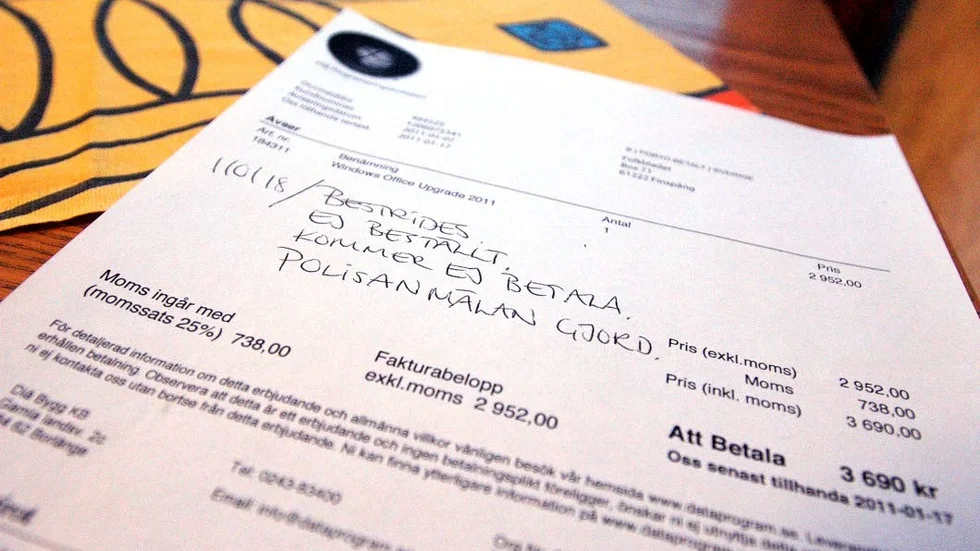 2011-01-17
Folkbladet
Box 71
61222 Finspång
Avser
Art. nr.
Benämning
Antal
Pris
184311
Windows Office Upgrade 2011
1
2 952,00
110118/ BESTRIDES
EJ BESTÄLLT.
KOMMER EJ BETALA.
POLISANMÄLAN GJORD.
Moms ingår med
(momssats 25%) 738,00
Fakturabelopp
exkl.moms 2 952,00
Pris (exkl.moms) 2 952,00
Moms 738,00
Pris (inkl. moms) 3 690,00
Att Betala 3 690 kr
Oss senast tillhanda 2011-01-17
För detaljerad information om detta erbjudande och allmänna villkor vänligen besök vår hemsida www.dataprogram.se.
erhållen betalning. Observera att detta är ett erbjudande och ingen betalningsplikt föreligger, önskar ni ej utnyttja
ni ej kontakta oss utan bortse från detta erbjudande. Ni kan finna ytterligare information på www.dataprogram
Dia Bygg KB
Gamla landsv. 2c
Borlänge
Tel: 0243-93400
Email: info@dataprogram